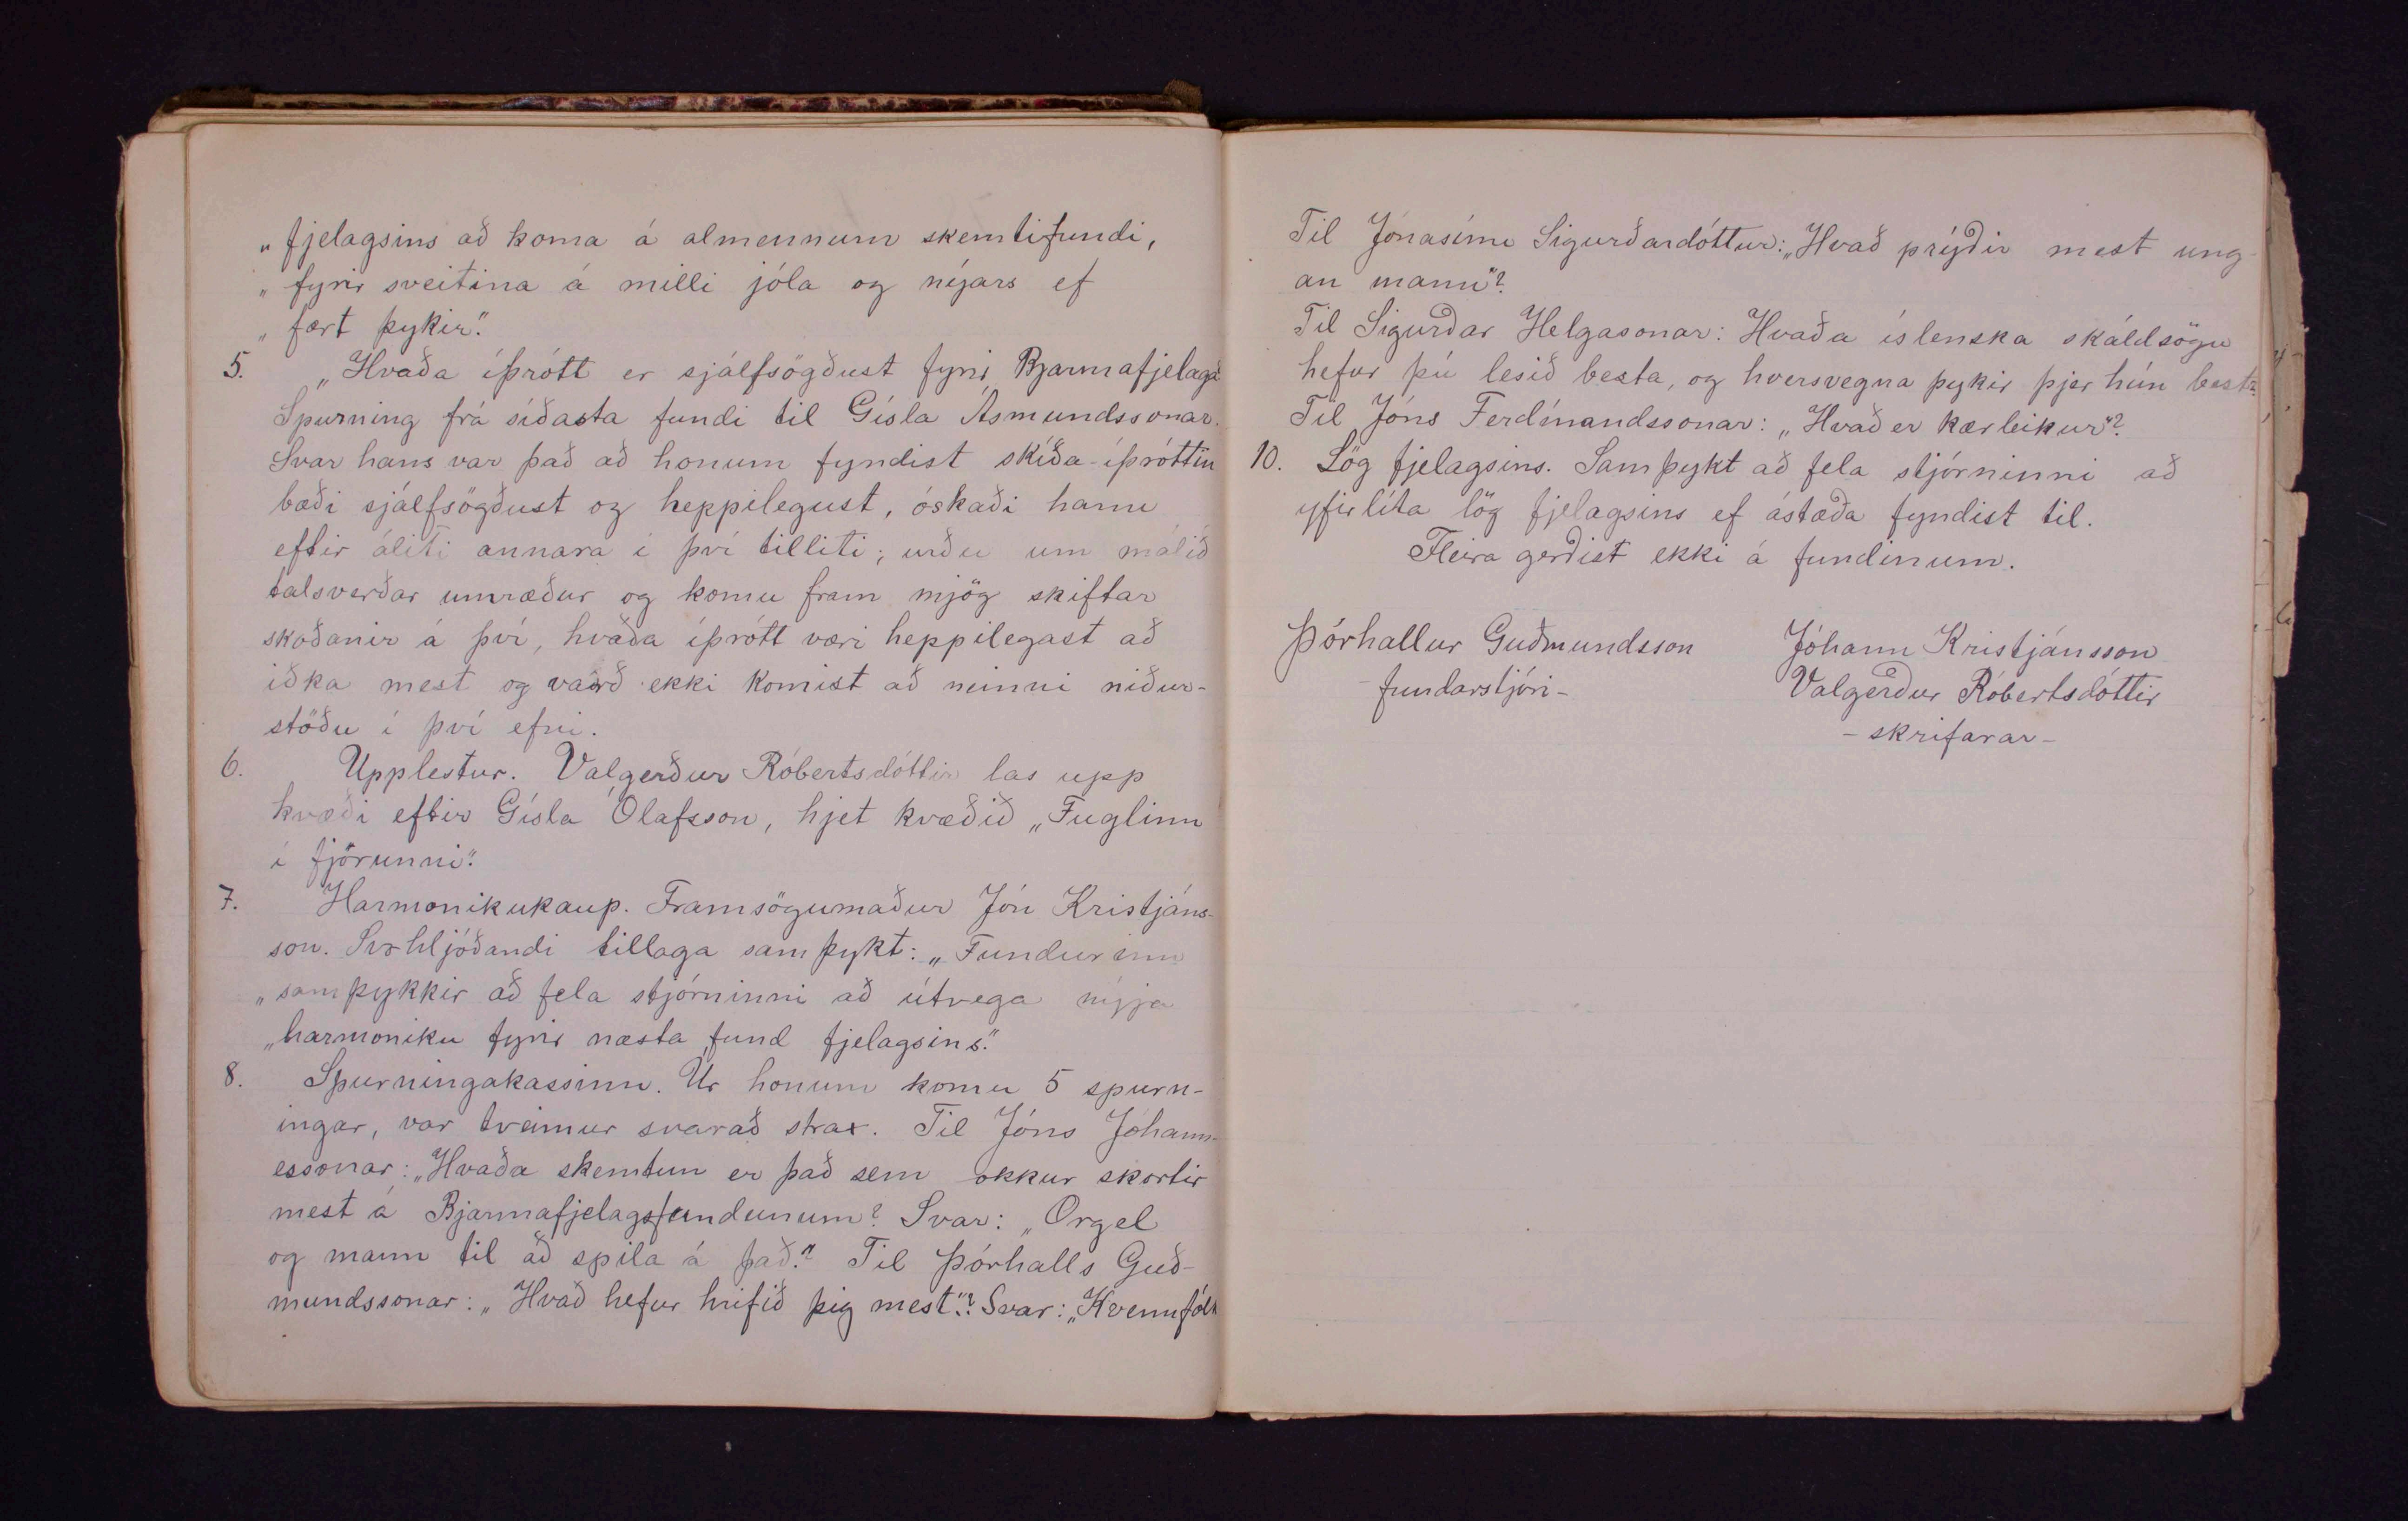 „fjelagsins að koma á almennum skemtifundi,
„fyrir sveitina á milli jóla og nýjars ef
„fært þykir."
5. „Hvaða íþrótt er sjálfsögðust fyrir Bjarmafjelagð
Spurning frá síðasta fundi til Gísla Ásmundssonar.
Svar hans var það að honum fyndist skíða-íþróttin
bæði sjálfsögðust og heppilegust, óskaði hann
eftir áliti annara í því tilliti; urðu um málið
talsverðar umræður og komu fram mjög skiftar
skoðanir á því, hvaða íþrótt væri heppilegast að
iðka mest og varð ekki komist að neinni niður-
stöðu í því efni.
6. Upplestur. Valgerður Róbertsdóttir las upp
kvæði eftir Gísla Ólafsson, hjet kvæðið „Fuglinn
í fjörunni".
7. Harmonikukaup. Framsögumaður Jón Kristjáns-
son. Svohljóðandi tillaga samþykt: „Fundurinn
„samþykkir að fela stjórninni að útvega nýja
„harmoniku fyrir næsta fund fjelagsins."
8. Spurningakassinn. Úr honum komu 5 spurn-
ingar, var tveimur svarað strax. Til Jóns Jóhann-
essonar: „Hvaða skemtun er það sem okkur skortir
mest á Bjarmafjelagsfundunum? Svar: „Orgel
og mann til að spila á það." Til Þórhalls Guð-
mundssonar: „Hvað hefur hrifið þig mest"? Svar: „Kvennfólk
Til Jónasínu Sigurðardóttur: „Hvað prýðir mest ung-
an mann"?
Til Sigurðar Helgasonar: Hvaða íslenska skáldsögu
hefur þú lesið besta, og hversvegna þykir þjer hún best?
Til Jóns Ferdínandssonar: „Hvað er kærleikur"?
10. Lög fjelagsins. Samþykt að fela stjórninni að
yfirlíta lög fjelagsins ef ástæða fyndist til.
Fleira gerðist ekki á fundinum.
Þórhallur Guðmundsson Jóhann Kristjánsson
fundarstjóri- Valgerður Róbertsdóttir
-skrifarar-